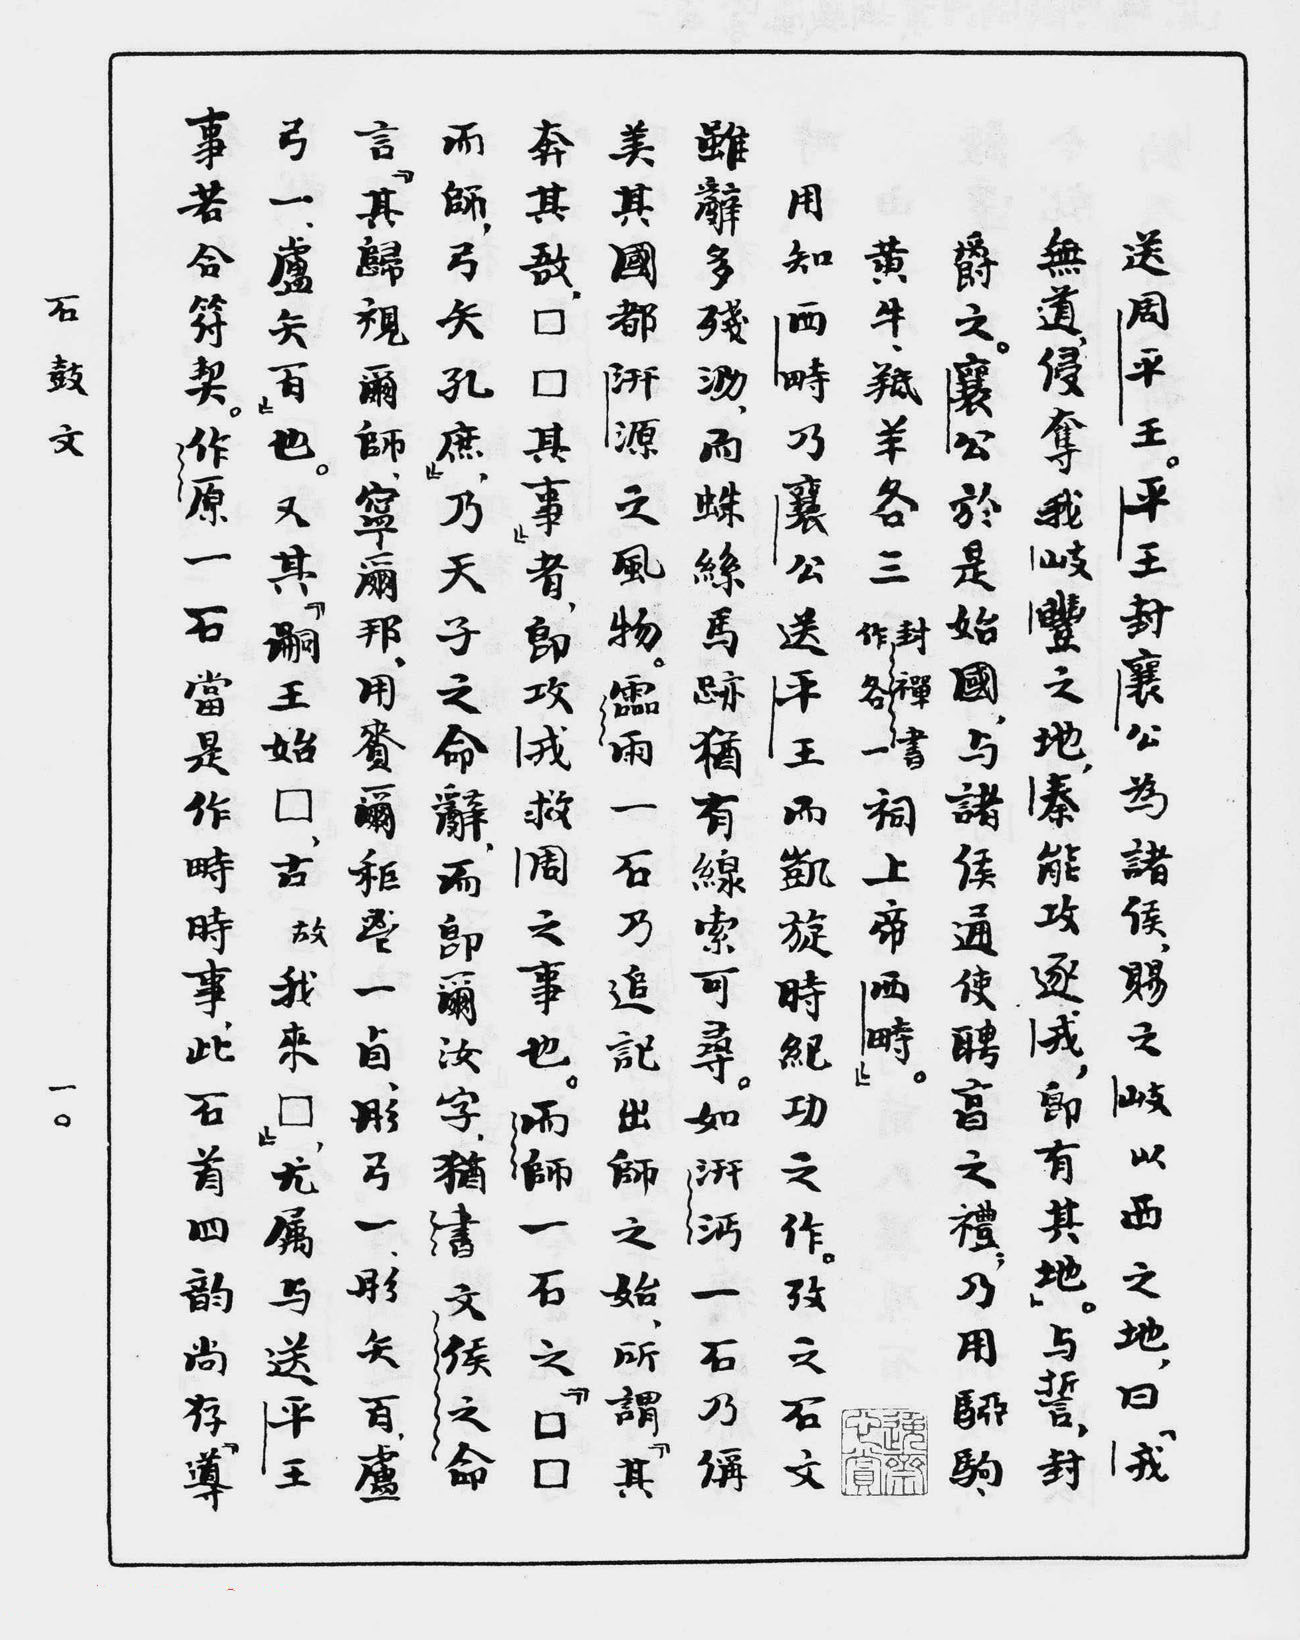 送周平王。平王封襄公為諸侯，賜之岐以西之地，曰『戎
無道，侵奪我岐豐之地，秦能攻逐戎，即有其地』。与誓，封
爵之。襄公於是始國，与諸侯通使聘享之禮；乃用騮駒、
黄牛、羝羊各三封禪書作各一祠上帝西畤』。
用知西畤乃襄公送平王而凱旋時紀功之作。攷之石文
雖辭多殘泐，而蛛絲馬跡猶有線索可尋。如汧沔一石乃稱
美其國都汧源之風物。霝雨一石乃追記出師之始，所謂『其
奔其敔，□□其事』者，即攻戎救周之事也。而師一石之『□□
而師，弓矢孔庶』，乃天子之命辭，而即爾汝字，猶書文侯之命
言『其歸視爾師，寧爾邦，用賚爾秬鬯一卣，彤弓一、彤矢百，盧
弓一、盧矢百』也。又其『嗣王始□，古故我來□』，尤属与送平王
事若合符契。作原一石當是作畤時事，此石首四韵尚存『導
石鼓文
一〇